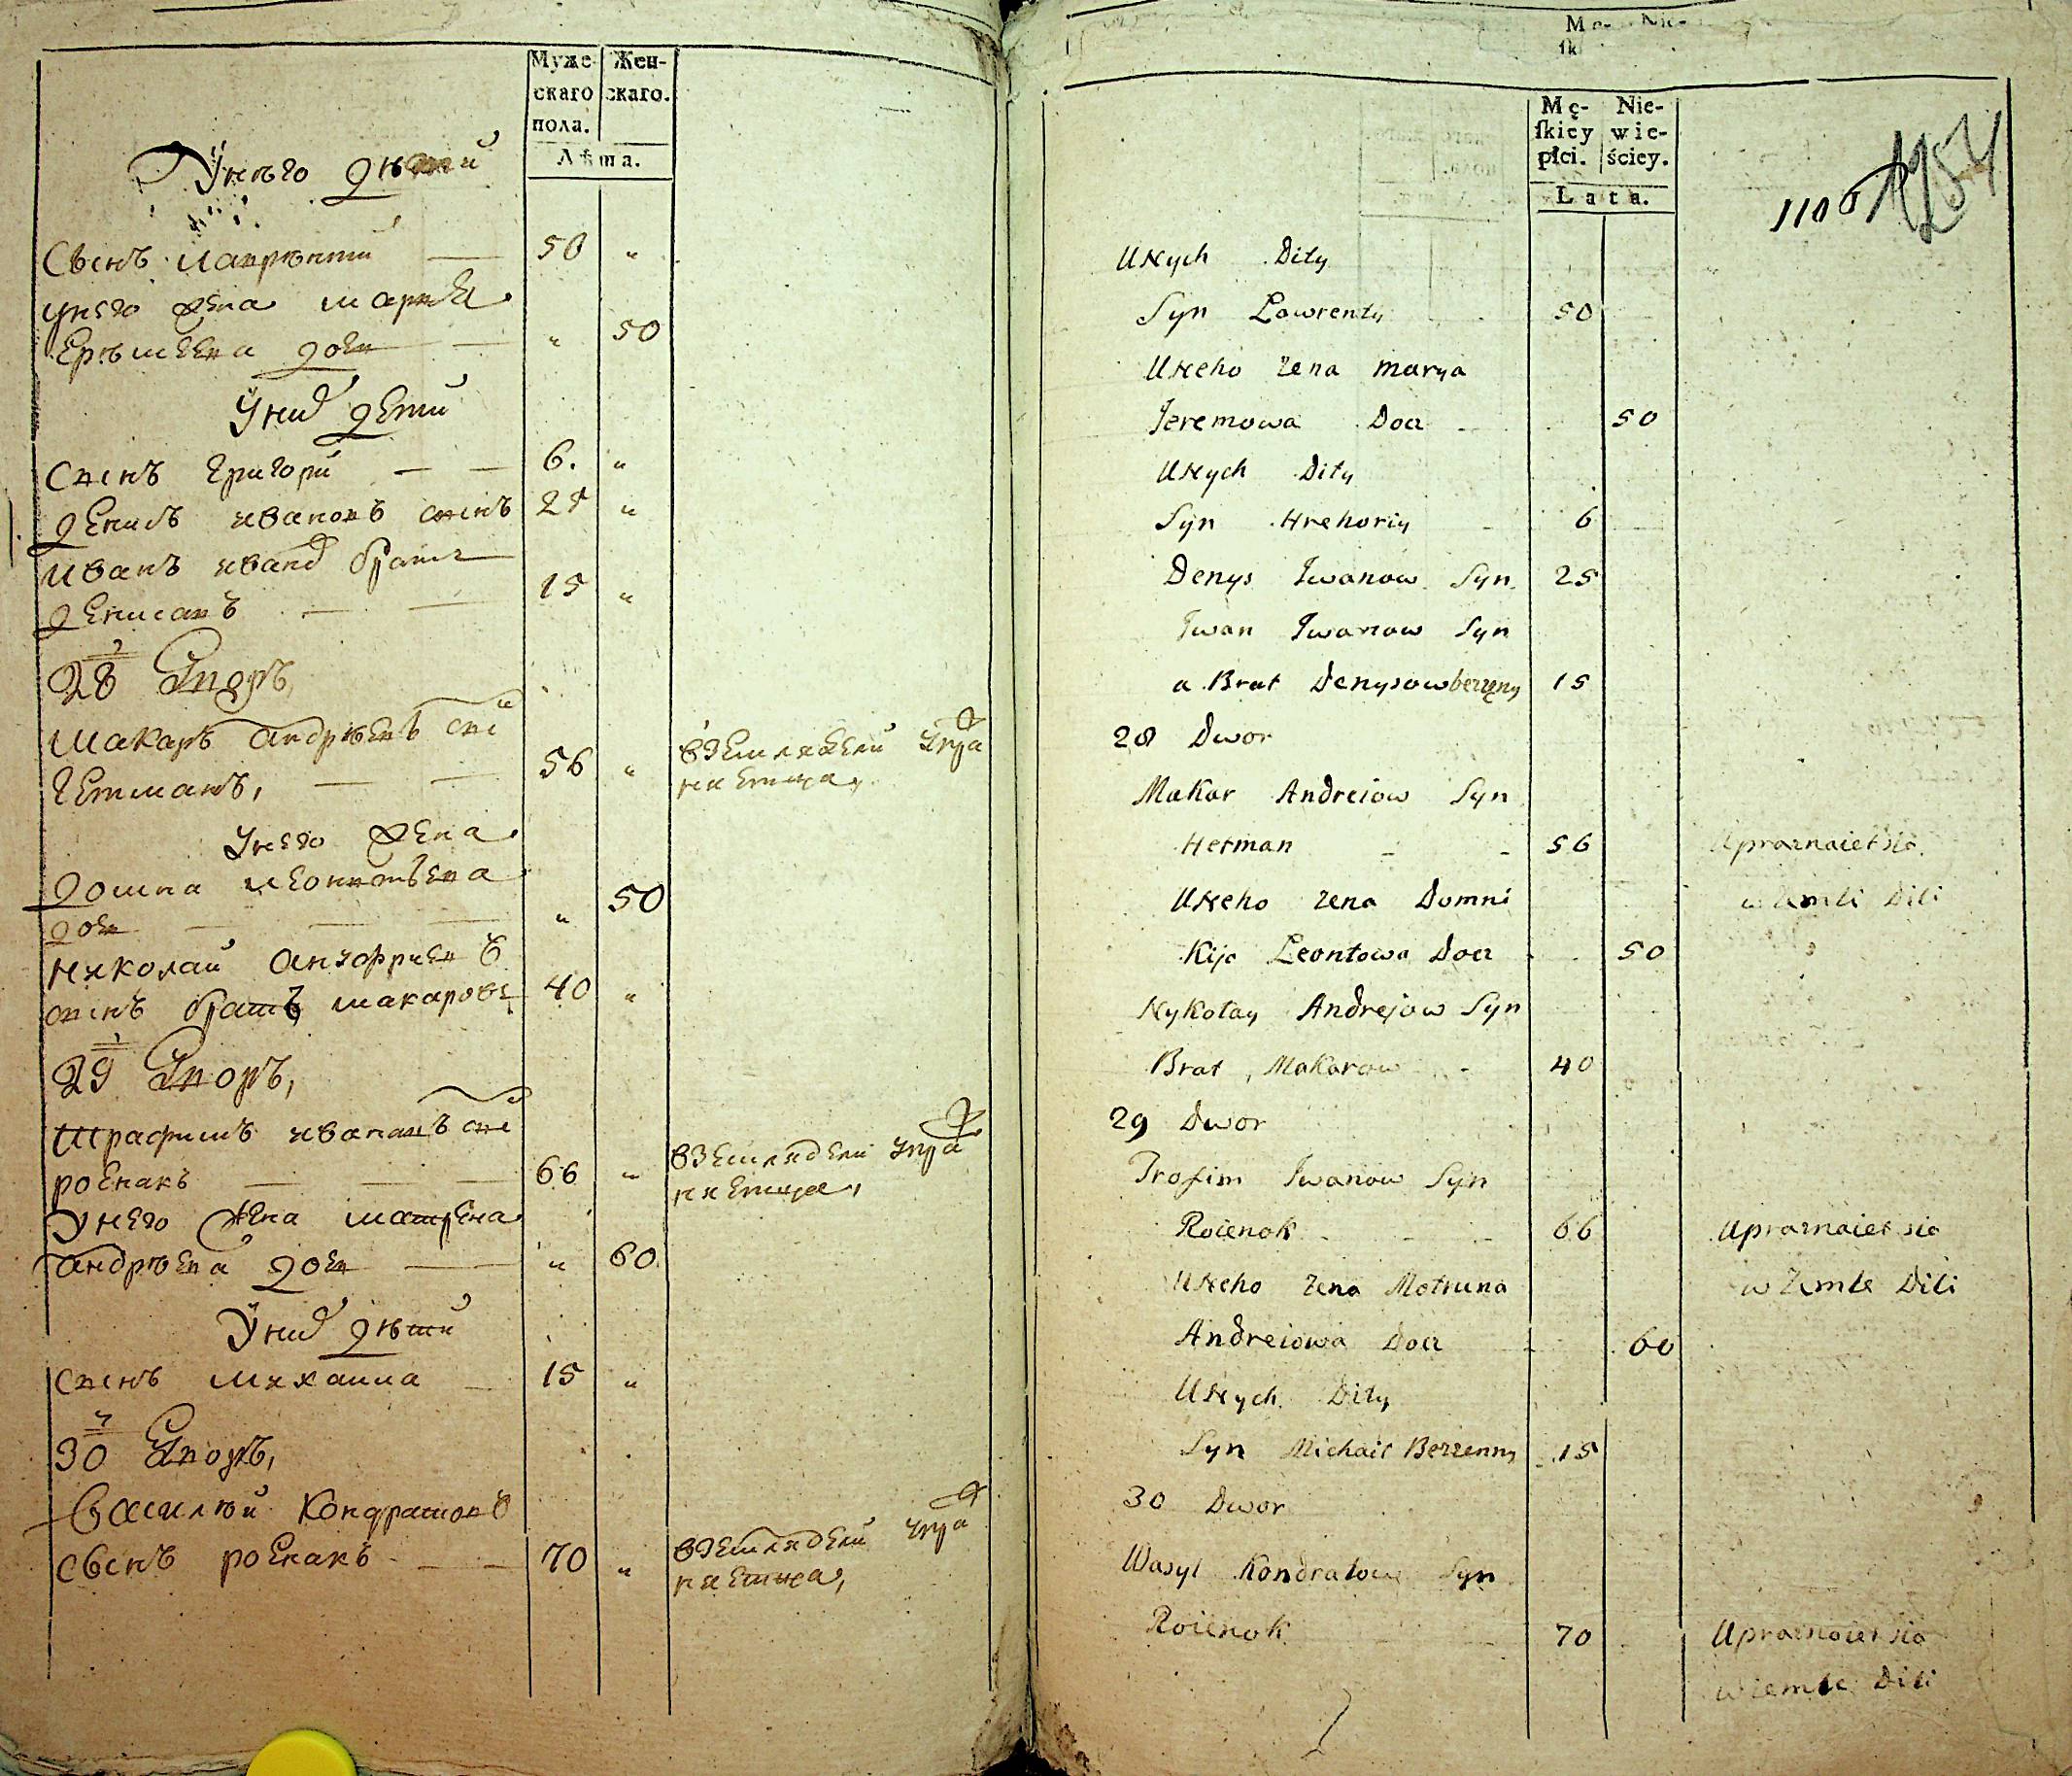 Муже- Жен-
скаго скаго.
пола.
Лѣта.
Унѣго дѣтей
Сынъ Лаврѣнтий — 50 "
унего жена Марья
Ерѣмеева дочь — " 50
У них дети
Сынъ Григори — — 6. "
Денисъ ивановъ сынъ 25 "
Иванъ иванов братъ
Денисавъ — — 15 "
28 Дворъ,
Макаръ андрѣевъ сын
Гетманъ, — — 56 " вземледели упра
няетца,
Унего жена
Домна Леонтьева
дочь — — — " 50
Николай андрѣевъ
сынъ братъ макаровъ 40 "
29 Дворъ,
Трафимъ ивановъ сын
роенакъ — — — 66 " вземледели упра
няетца,
Унего жена матрена
андрѣева дочь — " 60
У них дѣти
Сынъ михаила — 15 "
30 Дворъ,
Василей Кондратовъ
Сынъ роенакъ — — 70 " вземледели упра
няетца,
Mę- Nie-
ſkiey wie-
płci. ściey.
Lata.
1106
1254
UNych Dity
Syn Lawrenty 50
UNeho zena Marya
Jeremowa Docz 50
UNych Dity
Syn Hrehoriy 6
Denys Jwanow Syn 25
Jwan Jwanow Syn
a Brat Denysow bezzęny 15
28 Dwor
Makar Andreiow Syn
Hetman - - 56 Uprażnaiet sia
w Zemli Dili
UNeho zena Domni
Kija Leontowa Docz 50
Nykołay Andrejow Syn
Brat Makarow - 40
29 Dwor
Trofim Jwanow Syn
Roienok - - - 66 Uprażnaiet sia
w Zemle Dili
UNeho zena Motruna
Andreiowa Docz 60
UNych Dity
Syn Michaił Bezzenny 15
30 Dwor
Wasyl Kondratow Syn
Roienok 70 Uprażnaiet sia
w zemle Dili